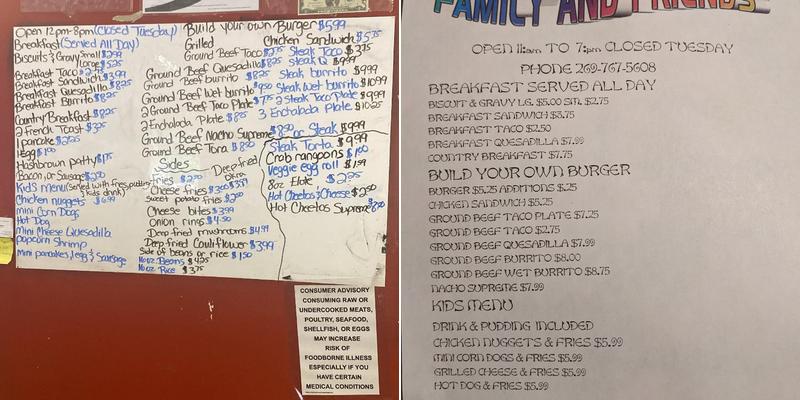 Open 12pm-8pm (Closed Tuesday)
Breakfast (Served All Day)
Biscuits & Gravy small $2.99
large $5.25
Breakfast Taco
Breakfast Sandwich $3.99
Breakfast Quesadilla $8.25
Breakfast Burrito $8.25
Country Breakfast $8.25
2 French Toast $3.25
1 pancake
1 egg
Hashbrown patty
Bacon, or Sausage
Kids menu (Served with fries, pudding & kids drink)
Chicken nuggets $6.99
mini Corn Dogs
Hot Dog
Mini Cheese Quesadilla
popcorn Shrimp
Mini pancakes, 1 egg & Sausage
Build your own Burger $5.99
Grilled Chicken Sandwich $5.75
Ground Beef Taco $2.75 Steak Taco $3.75
Ground Beef Quesadilla $8.25 Steak Q $9.99
Ground Beef burrito $8.25 Steak burrito $9.99
Ground Beef Wet burrito $9.50 Steak Wet burrito $10.99
2 Ground Beef Taco Plate $7.75 2 Steak Taco Plate $9.99
2 Enchalada Plate $8.25 3 Enchalada Plate $10.25
Ground Beef Nacho Supreme $8.50 or Steak $9.99
Ground Beef Torta $8.50
Steak Torta $9.99
Crab rangoons $1.00
Veggie egg roll $1.59
8oz Elote $2.95
Hot Cheetos & Cheese
Hot Cheetos Supreme
Sides
Deep fried Okra
Fries
Cheese fries
Sweet potato fries
Cheese bites $3.99
Onion rings $4.50
Deep fried mushrooms $4.99
Deep fried Cauliflower $3.99
Side of beans or rice $1.50
16oz Beans $4.25
16oz Rice $3.75
CONSUMER ADVISORY
CONSUMING RAW OR
UNDERCOOKED MEATS,
POULTRY, SEAFOOD,
SHELLFISH, OR EGGS
MAY INCREASE
RISK OF
FOODBORNE ILLNESS
ESPECIALLY IF
YOU HAVE CERTAIN
MEDICAL CONDITIONS
FAMILY AND FRIENDS
OPEN 11:am TO 7:pm CLOSED TUESDAY
PHONE 269-767-5608
BREAKFAST SERVED ALL DAY
BISCUIT & GRAVY LG. $5.00 SM. $2.75
BREAKFAST SANDWICH $3.75
BREAKFAST TACO $2.50
BREAKFAST QUESADILLA $7.99
COUNTRY BREAKFAST $7.75
BUILD YOUR OWN BURGER
BURGER $5.25 ADDITIONS $.25
CHICKEN SANDWICH $5.25
GROUND BEEF TACO PLATE $7.25
GROUND BEEF TACO $2.75
GROUND BEEF QUESADILLA $7.99
GROUND BEEF BURRITO $8.00
GROUND BEEF WET BURRITO $8.75
NACHO SUPREME $7.99
KIDS MENU
DRINK & PUDDING INCLUDED
CHICKEN NUGGETS & FRIES $5.99
MINI CORN DOGS & FRIES $5.99
GRILLED CHEESE & FRIES $5.99
HOT DOG & FRIES $5.99